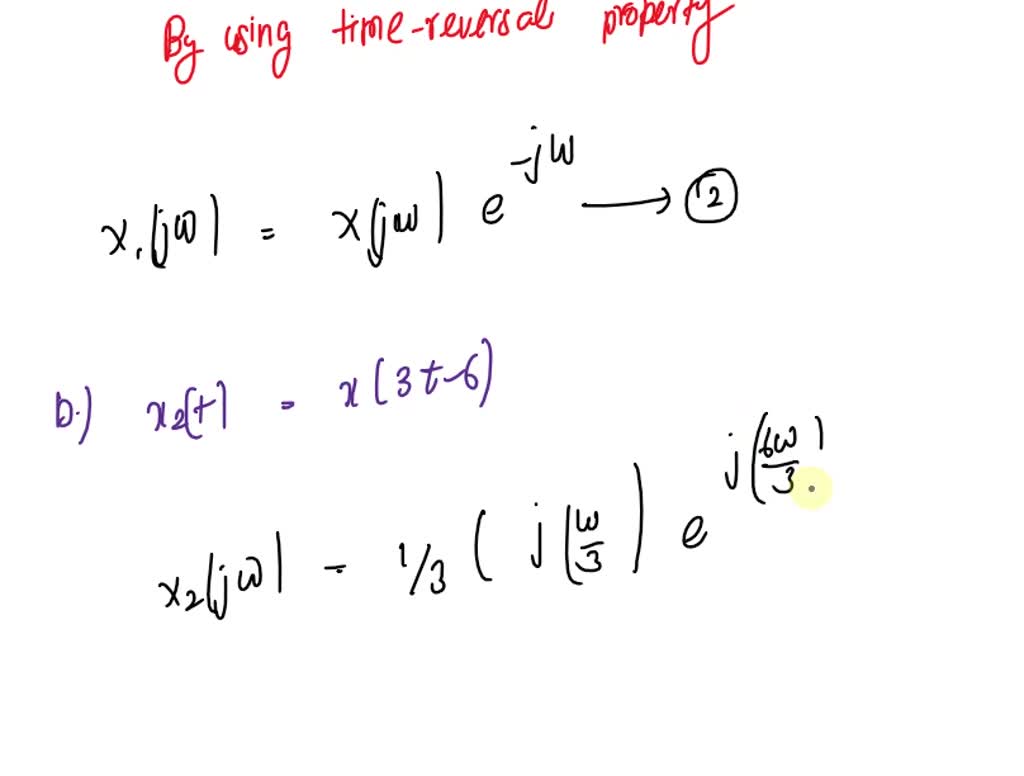 By using time-reversal property
x₁(jω) = x(jω) e^{-jω} → ②
b.) x₂(t) = x(3t-6)
x₂(jω) = 1/3 ( j(ω/3) ) e^{j(6ω/3)}